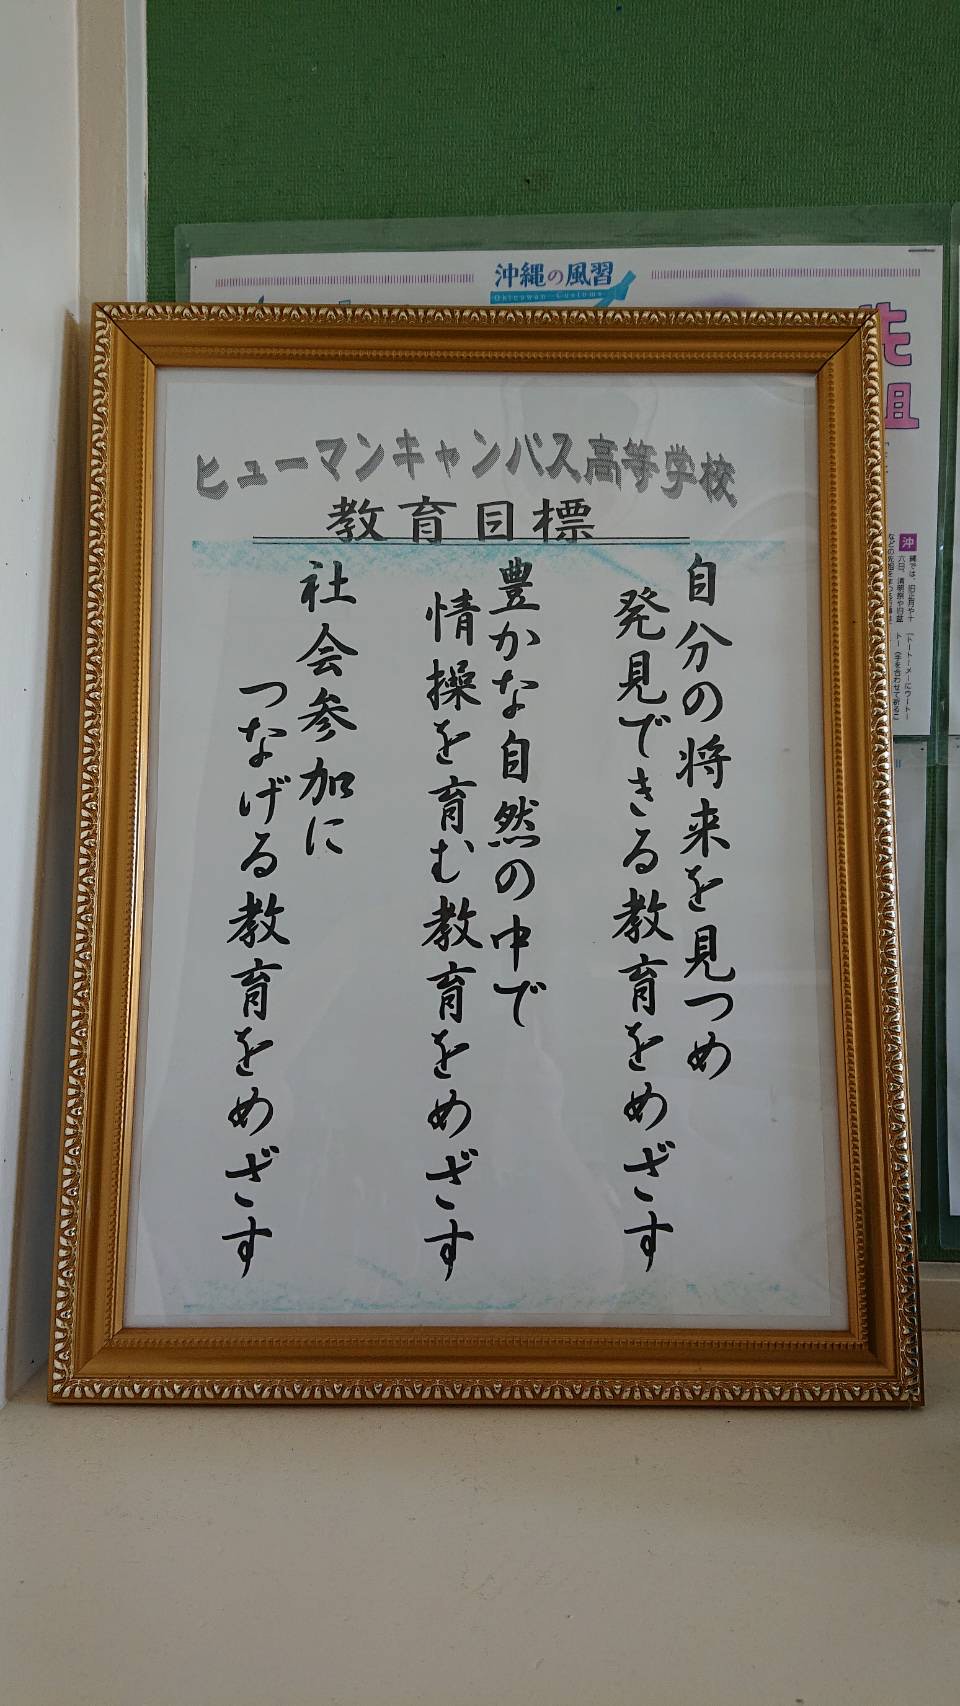 沖縄の風習
Okinawan Customs
先
祖
ヒューマンキャンパス高等学校
教育目標
自分の将来を見つめ
発見できる教育をめざす
豊かな自然の中で
情操を育む教育をめざす
社会参加に
つなげる教育をめざす
沖
縄では、旧正月や十
六日、清明祭や旧盆